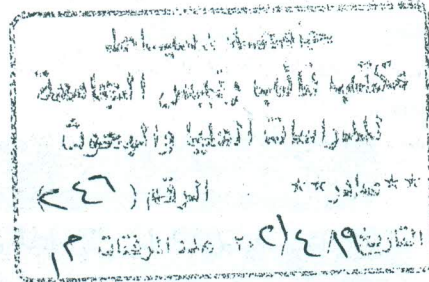 جامعة دمياط
مكتب نائب رئيس الجامعة
للدراسات العليا والبحوث
**صادر** الرقم ( ٢٤٦ )
التاريخ ١٩/٤/٢٠٢ عدد المرفقات